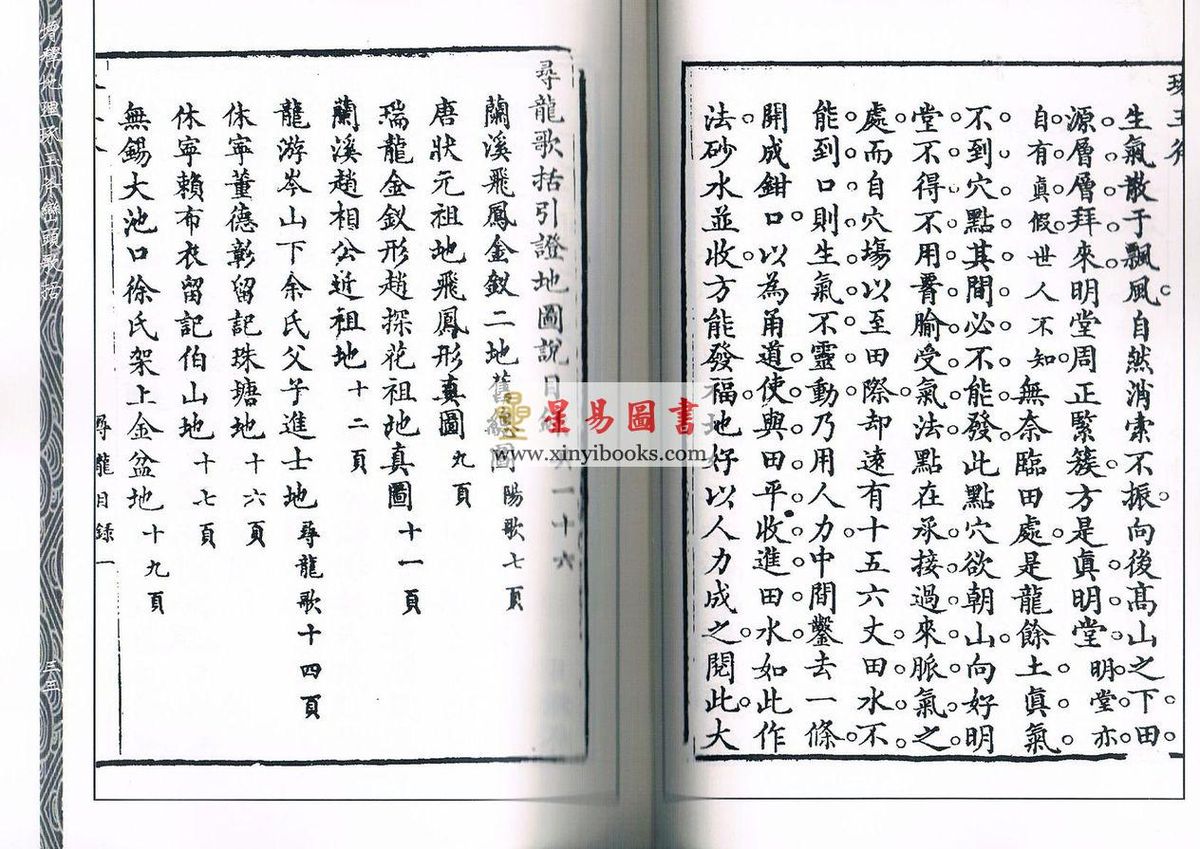 生氣散于飄風自然消索不振向後高山之下田
源層層拜來明堂周正緊簇方是眞明堂明堂亦
自有眞假世人不知無奈臨田處是龍餘土眞氣
不到穴點其間必不能發此點穴欲朝山向好明
堂不得不用脊腧受氣法點在承接過來脈氣之
處而自穴塲以至田際却遠有十五六丈田水不
能到口則生氣不靈動乃用人力中間鑿去一條
開成鉗口以為甬道使與田平收進田水如此作
法砂水並收方能發福地好以人力成之閱此大
尋龍歌括引證地圖說目 一十六
蘭溪飛鳳金釵二地 圖陽歌七頁
唐狀元祖地飛鳳形真圖九頁
瑞龍金釵形趙探花祖地真圖十一頁
蘭溪趙相公近祖地十二頁
龍游岑山下余氏父子進士地尋龍歌十四頁
休寧董德彰留記珠塘地十六頁
休寧賴布衣留記伯山地十七頁
無錫大池口徐氏架上金盆地十九頁
尋龍目錄一
三五
星易圖書
www.xinyibooks.com